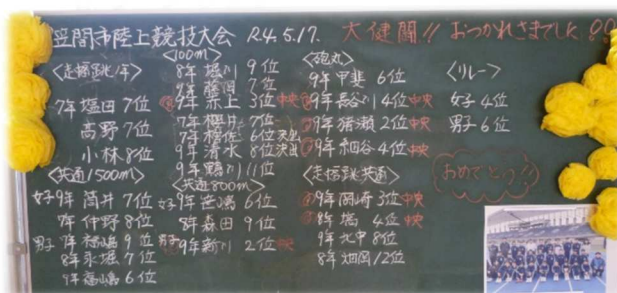 笠間市陸上競技大会 R4.5.17. 大健闘!! おつかれさまでした
〈走幅跳1年〉
7年 塩田 7位
高野 7位
小林 8位
〈共通1500m〉
女子 9年 筒井 7位
7年 仲野 8位
男子 7年 福嶋 9位
8年 永堀 7位
9年 福嶋 6位
〈100m〉
8年 堀川 9位
9年 藤田 7位
9年 赤上 3位 中央
7年 櫻井 7位
7年 6位 決出
9年 清水 8位 決出
9年 鶴川 11位
〈共通800m〉
女子 9年 笹嶋 6位
8年 森田 9位
男子 9年 新川 2位 中央
〈砲丸〉
9年 甲斐 6位
9年 長谷川 4位 中央
9年 猪瀬 2位 中央
9年 細谷 4位 中央
〈走幅跳共通〉
9年 岡崎 3位 中央
8年 塙 4位 中央
9年 北中 8位
8年 畑岡 12位
〈リレー〉
女子 4位
男子 6位
おめでとう!!